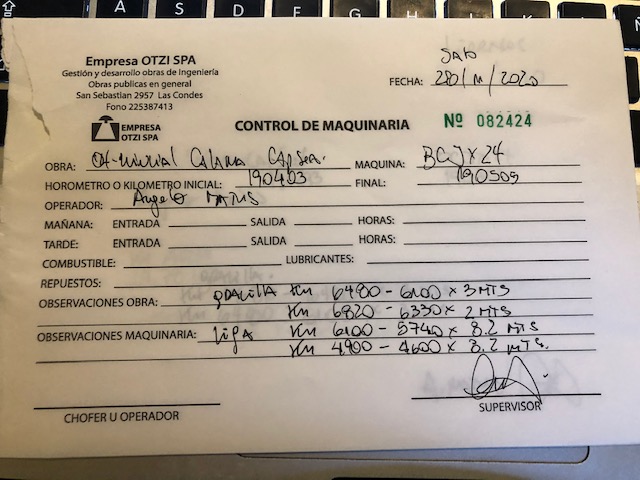 Empresa OTZI SPA
Gestión y desarrollo obras de Ingeniería
Obras publicas en general
San Sebastian 2957 Las Condes
Fono 225387413
EMPRESA
OTZI SPA
CONTROL DE MAQUINARIA
Nº 082424
FECHA: 28/11/2020
OBRA: Calama
MAQUINA: BCJX24
HOROMETRO O KILOMETRO INICIAL: 190403 FINAL: 190509
OPERADOR: Angelo
MAÑANA: ENTRADA SALIDA HORAS:
TARDE: ENTRADA SALIDA HORAS:
COMBUSTIBLE: LUBRICANTES:
REPUESTOS:
OBSERVACIONES OBRA: Km 6400 - 6100 x 3 MTS
Km 6820 - 6330 x 2 MTS
OBSERVACIONES MAQUINARIA: Km 6100 - 5740 x 8.2 MTS
Km 4900 - 4600 x 8.2 MTS.
CHOFER U OPERADOR
SUPERVISOR
A
S
D
F
G
H